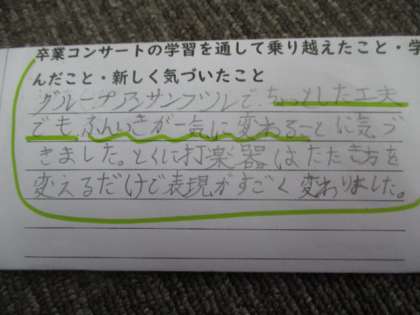 卒業コンサートの学習を通して乗り越えたこと・学
んだこと・新しく気づいたこと
グループアンサンブルで、ちょっとした工夫
でも、ふんいきが一気に変わることに気づ
きました。とくに打楽器はたたき方を
変えるだけで表現がすごく変わりました。